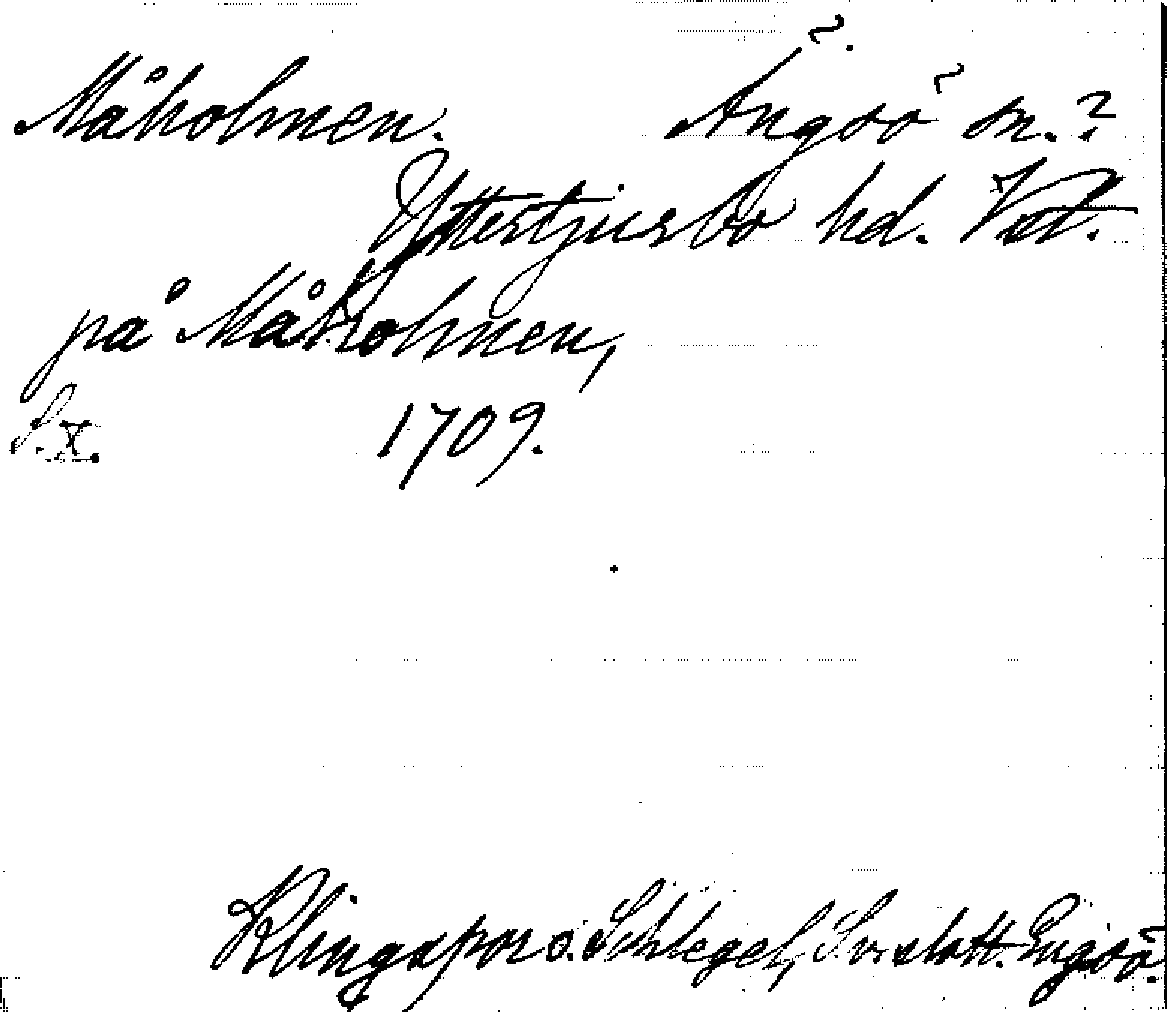 Måholmen. Ängsö sn.?
Yttertjurbo hd. Vstl.
på Måholmen,
S.X. 1709.
Klingspor o. Schlegel, Sv. slott. Engsö.